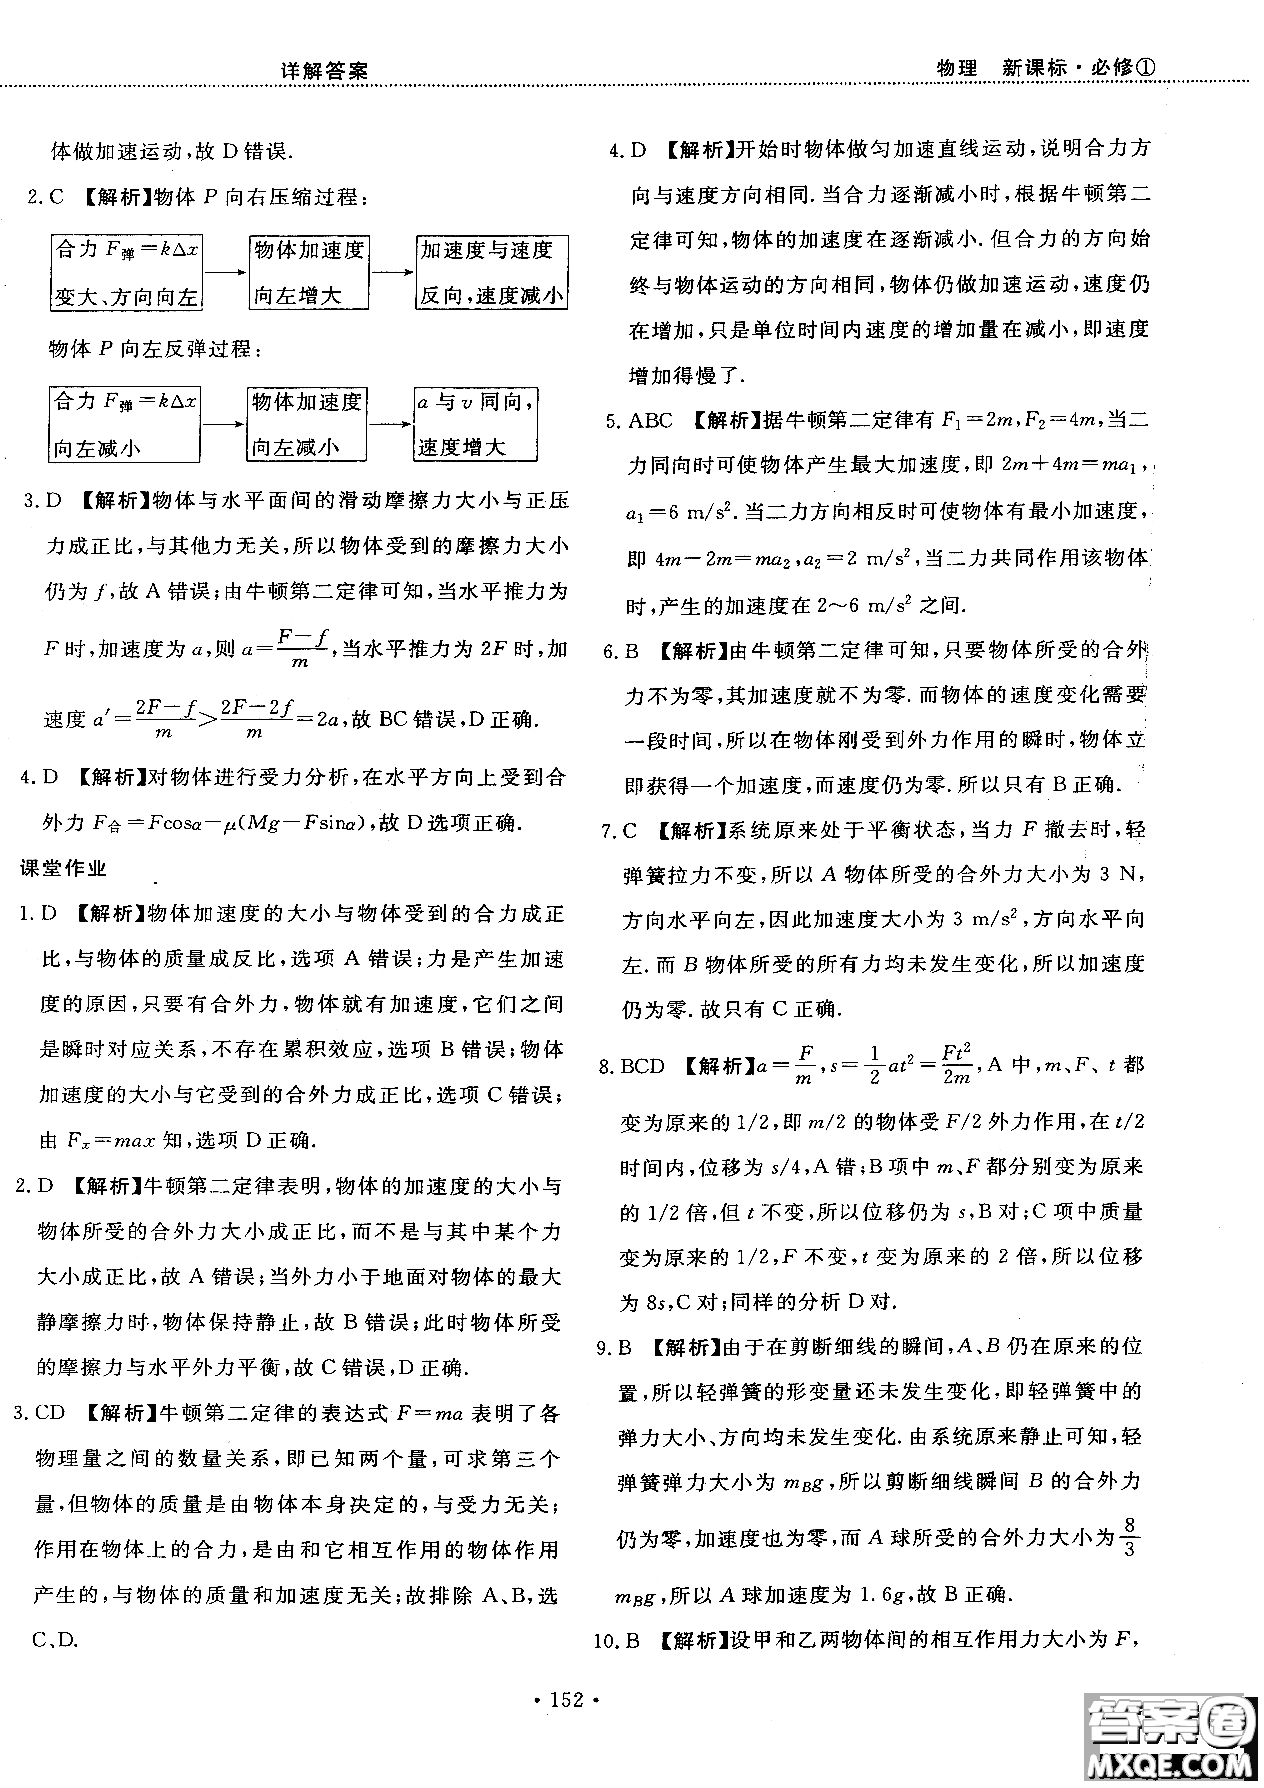 详解答案
物理 新课标·必修①
体做加速运动,故 D 错误.
2. C 【解析】物体 P 向右压缩过程:
合力 F弹=kΔx
变大、方向向左
物体加速度
向左增大
加速度与速度
反向,速度减小
物体 P 向左反弹过程:
合力 F弹=kΔx
向左减小
物体加速度
向左减小
a 与 v 同向,
速度增大
3. D 【解析】物体与水平面间的滑动摩擦力大小与正压
力成正比,与其他力无关,所以物体受到的摩擦力大小
仍为 f,故 A 错误;由牛顿第二定律可知,当水平推力为
F 时,加速度为 a,则 a=(F-f)/m,当水平推力为 2F 时,加
速度 a′=(2F-f)/m>(2F-2f)/m=2a,故 BC 错误,D 正确.
4. D 【解析】对物体进行受力分析,在水平方向上受到合
外力 F合=Fcosα-μ(Mg-Fsinα),故 D 选项正确.
课堂作业
1. D 【解析】物体加速度的大小与物体受到的合力成正
比,与物体的质量成反比,选项 A 错误;力是产生加速
度的原因,只要有合外力,物体就有加速度,它们之间
是瞬时对应关系,不存在累积效应,选项 B 错误;物体
加速度的大小与它受到的合外力成正比,选项 C 错误;
由 Fx=max 知,选项 D 正确.
2. D 【解析】牛顿第二定律表明,物体的加速度的大小与
物体所受的合外力大小成正比,而不是与其中某个力
大小成正比,故 A 错误;当外力小于地面对物体的最大
静摩擦力时,物体保持静止,故 B 错误;此时物体所受
的摩擦力与水平外力平衡,故 C 错误,D 正确.
3. CD 【解析】牛顿第二定律的表达式 F=ma 表明了各
物理量之间的数量关系,即已知两个量,可求第三个
量,但物体的质量是由物体本身决定的,与受力无关;
作用在物体上的合力,是由和它相互作用的物体作用
产生的,与物体的质量和加速度无关;故排除 A、B,选
C、D.
4. D 【解析】开始时物体做匀加速直线运动,说明合力方
向与速度方向相同.当合力逐渐减小时,根据牛顿第二
定律可知,物体的加速度在逐渐减小.但合力的方向始
终与物体运动的方向相同,物体仍做加速运动,速度仍
在增加,只是单位时间内速度的增加量在减小,即速度
增加得慢了.
5. ABC 【解析】据牛顿第二定律有 F₁=2m,F₂=4m,当二
力同向时可使物体产生最大加速度,即 2m+4m=ma₁,
a₁=6 m/s².当二力方向相反时可使物体有最小加速度,
即 4m-2m=ma₂,a₂=2 m/s²,当二力共同作用该物体
时,产生的加速度在 2～6 m/s² 之间.
6. B 【解析】由牛顿第二定律可知,只要物体所受的合外
力不为零,其加速度就不为零.而物体的速度变化需要
一段时间,所以在物体刚受到外力作用的瞬时,物体立
即获得一个加速度,而速度仍为零.所以只有 B 正确.
7. C 【解析】系统原来处于平衡状态,当力 F 撤去时,轻
弹簧拉力不变,所以 A 物体所受的合外力大小为 3 N,
方向水平向左,因此加速度大小为 3 m/s²,方向水平向
左.而 B 物体所受的所有力均未发生变化,所以加速度
仍为零.故只有 C 正确.
8. BCD 【解析】a=F/m,s=1/2 at²=Ft²/2m,A 中,m、F、t 都
变为原来的 1/2,即 m/2 的物体受 F/2 外力作用,在 t/2
时间内,位移为 s/4,A 错;B 项中 m、F 都分别变为原来
的 1/2 倍,但 t 不变,所以位移仍为 s,B 对;C 项中质量
变为原来的 1/2,F 不变,t 变为原来的 2 倍,所以位移
为 8s,C 对;同样的分析 D 对.
9. B 【解析】由于在剪断细线的瞬间,A、B 仍在原来的位
置,所以轻弹簧的形变量还未发生变化,即轻弹簧中的
弹力大小、方向均未发生变化.由系统原来静止可知,轻
弹簧弹力大小为 mBg,所以剪断细线瞬间 B 的合外力
仍为零,加速度也为零,而 A 球所受的合外力大小为 8/3
mBg,所以 A 球加速度为 1.6g,故 B 正确.
10. B 【解析】设甲和乙两物体间的相互作用力大小为 F,
·152·
答案圈
MXQE.COM